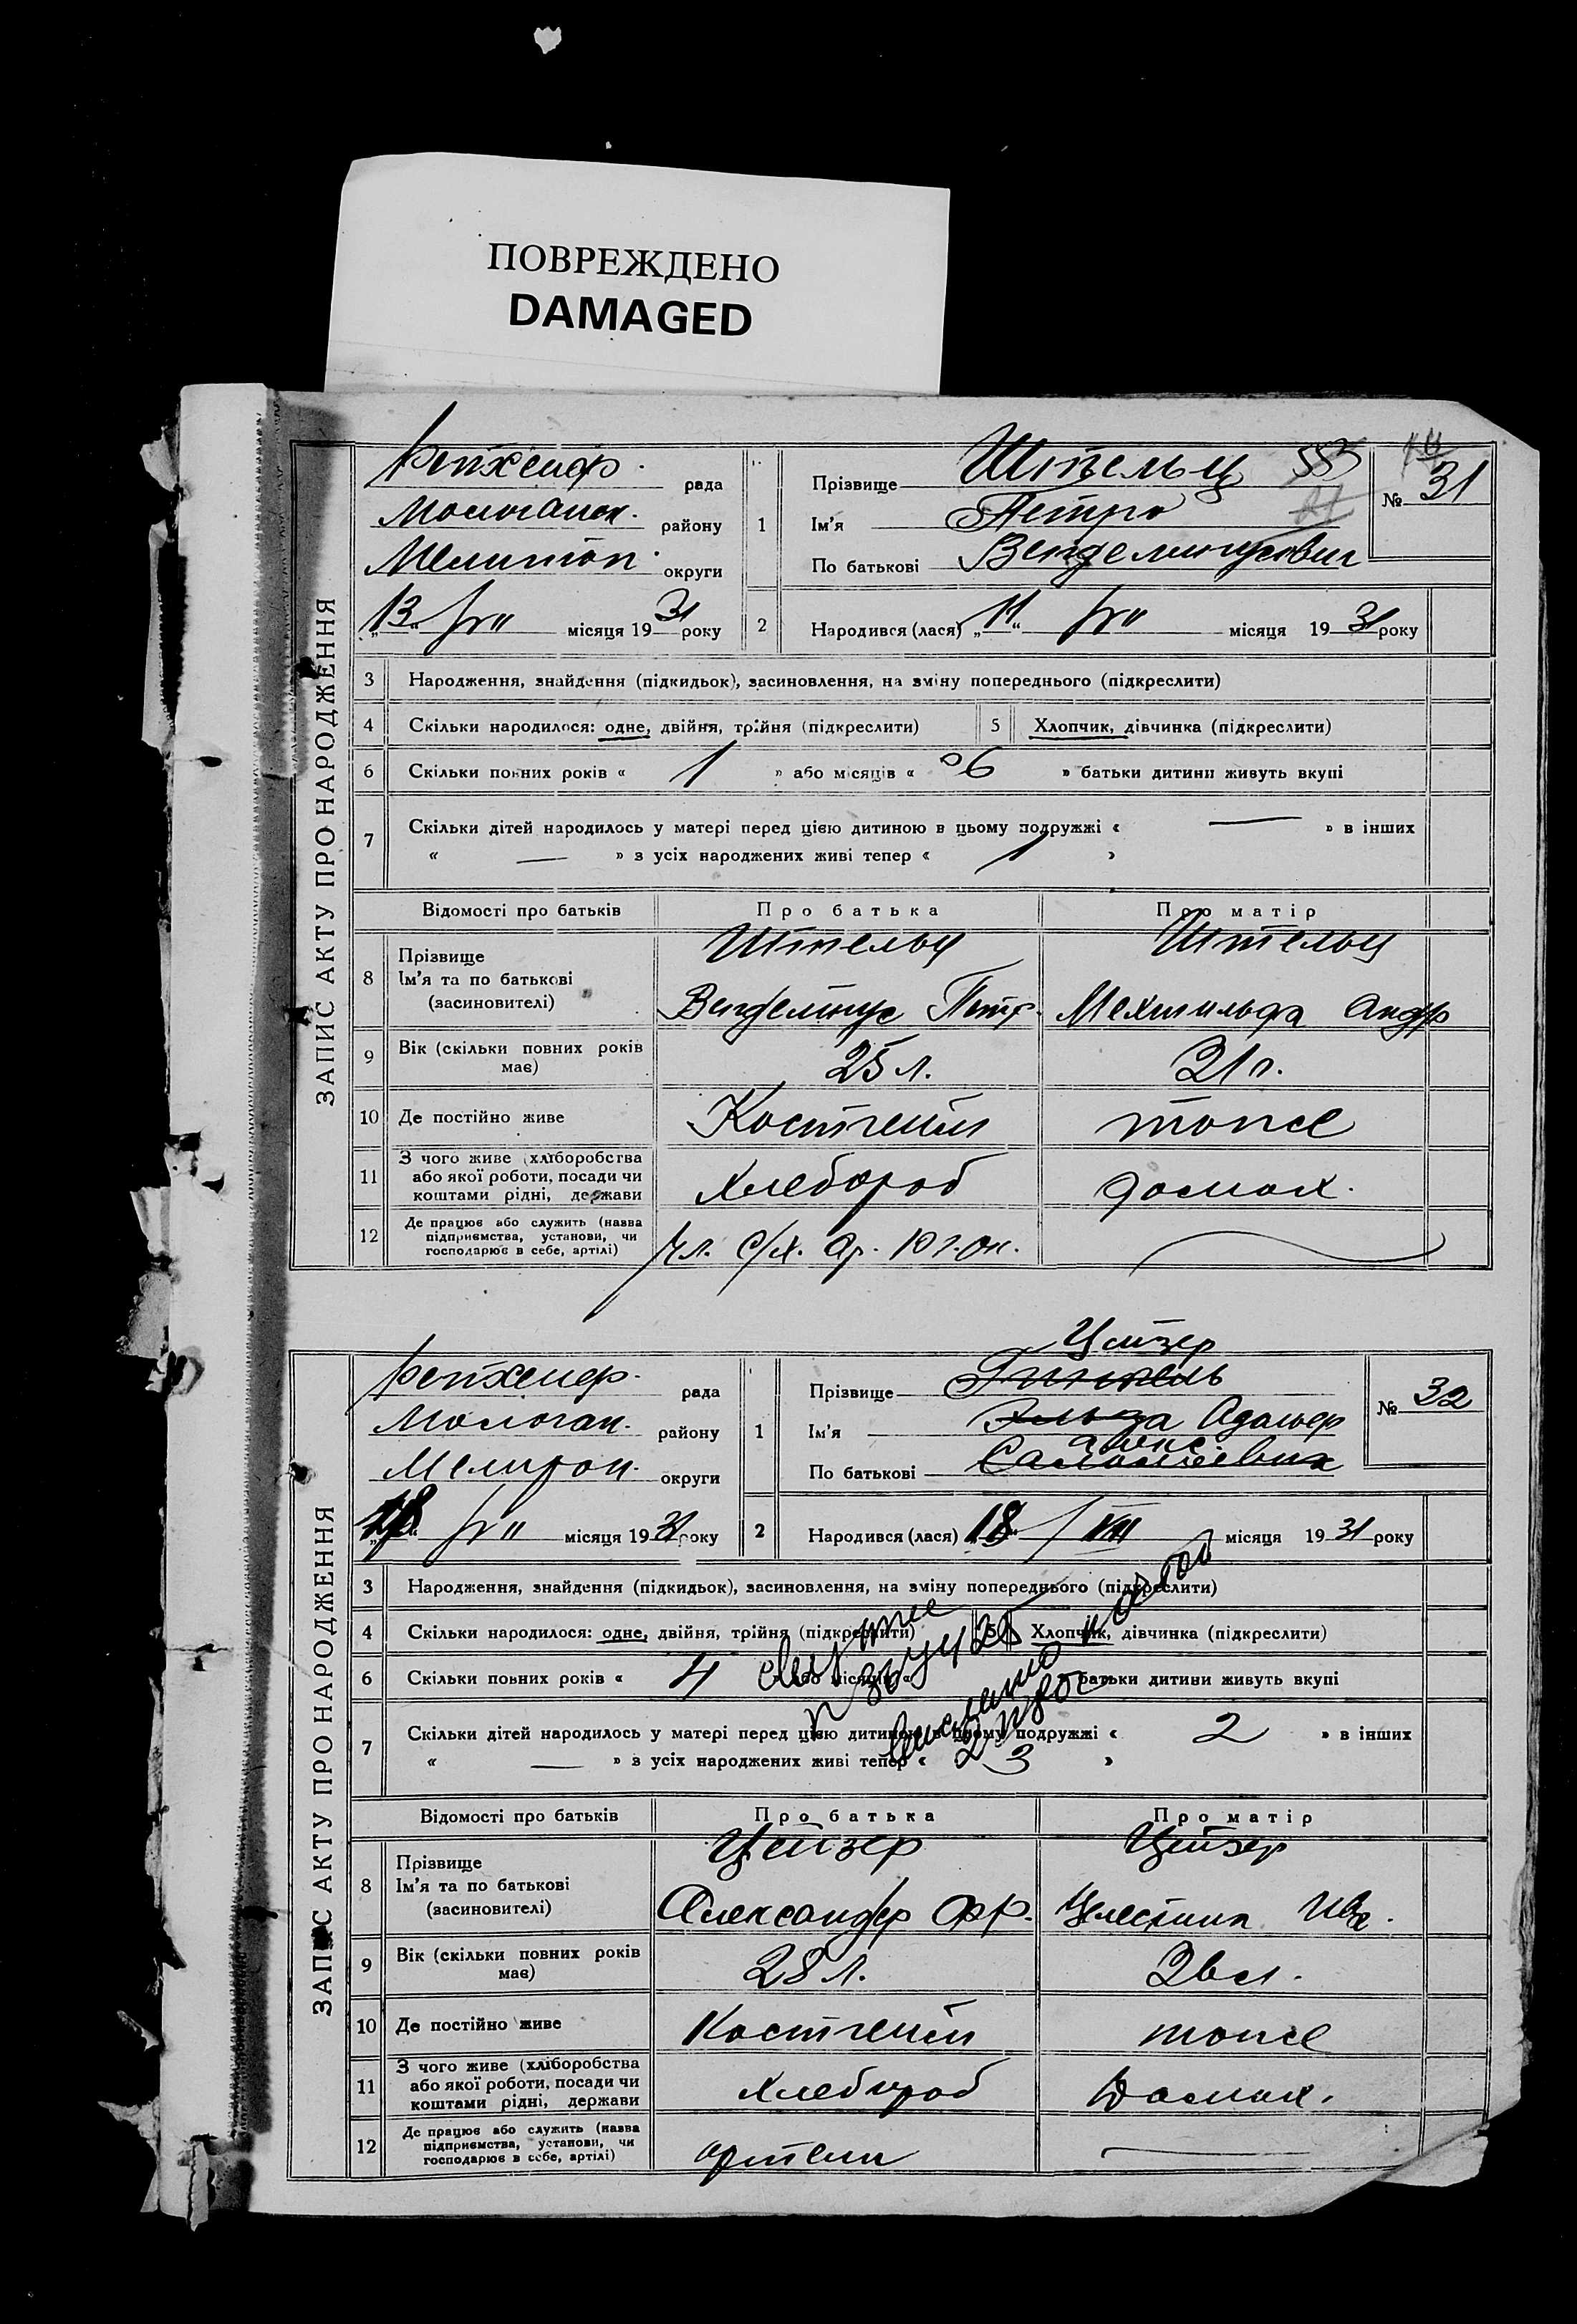 ПОВРЕЖДЕНО
DAMAGED
ЗАПИС АКТУ ПРО НАРОДЖЕННЯ
рада
Мологанск. району
Мелитоп. округи
„13“ місяця 1931 року
1
Прізвище Штельц
Ім'я Петро
По батькові Венделинусович
№ 31
2
Народився (лася) „11“ місяця 1931 року
3 Народження, знайдення (підкидьок), засиновлення, на зміну попереднього (підкреслити)
4 Скільки народилося: одне, двійня, трійня (підкреслити) 5 Хлопчик, дівчинка (підкреслити)
6 Скільки повних років « 1 » або місяців « 6 » батьки дитини живуть вкупі
7 Скільки дітей народилось у матері перед цією дитиною в цьому подружжі « — » в інших
« — » з усіх народжених живі тепер « 1 »
Відомості про батьків Про батька Про матір
8 Прізвище
Ім'я та по батькові
(засиновителі)
Штельц Штельц
Венделинус Петр. Мехтильда Андр
9 Вік (скільки повних років має) 25 л. 21 г.
10 Де постійно живе Костгейм тоже
11 З чого живе (хліборобства або якої роботи, посади чи коштами рідні, держави Хлебороб домах.
12 Де працює або служить (назва підприємства, установи, чи господарює в себе, артілі) Чл. с/х. ар.
ЗАПИС АКТУ ПРО НАРОДЖЕННЯ
рада
Мологан. району
Мелитоп. округи
„18“ місяця 1931 року
1
Цейзер
Прізвище
Ім'я Адольф
Алекс.
По батькові
№ 32
2
Народився (лася) „18“ VIII місяця 1931 року
3 Народження, знайдення (підкидьок), засиновлення, на зміну попереднього (підкреслити)
4 Скільки народилося: одне, двійня, трійня (підкреслити) 5 Хлопчик, дівчинка (підкреслити)
6 Скільки повних років « 4 » або місяців « » батьки дитини живуть вкупі
7 Скільки дітей народилось у матері перед цією дитиною в цьому подружжі « 2 » в інших
« — » з усіх народжених живі тепер « 3 »
Відомості про батьків Про батька Про матір
8 Прізвище
Ім'я та по батькові
(засиновителі)
Цейзер Цейзер
Александер Фр. Целестина Ив.
9 Вік (скільки повних років має) 28 л. 26 л.
10 Де постійно живе Костгейм тоже
11 З чого живе (хліборобства або якої роботи, посади чи коштами рідні, держави Хлебороб Домах.
12 Де працює або служить (назва підприємства, установи, чи господарює в себе, артілі) артели —